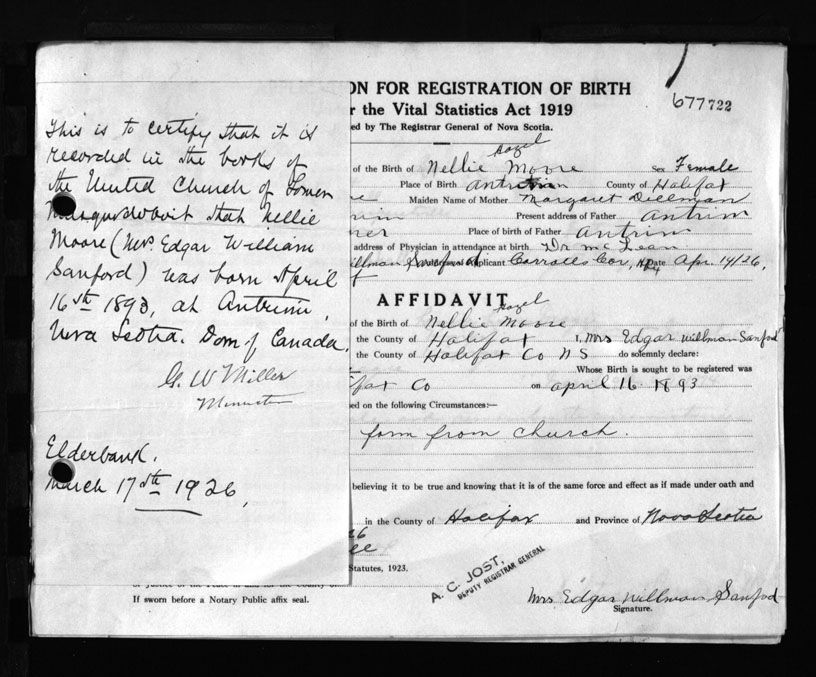 This is to certify that it is
recorded in the books of
the United Church of
Musquodoboit that Nellie
Moore (Mrs. Edgar William
Sanford) was born April
16th 1893, at Antrim,
Nova Scotia. Dom. of Canada.
G. W Miller
Minister
Elderbank.
March 17th 1926.
677722
ON FOR REGISTRATION OF BIRTH
r the Vital Statistics Act 1919
ed by The Registrar General of Nova Scotia.
Hazel
of the Birth of Nellie Moore Sex Female
Place of Birth Antrim County of Halifax
Maiden Name of Mother Margaret Dillman
Present address of Father Antrim
Place of birth of Father Antrim
address of Physician in attendance at birth Dr McLean
Applicant Carrolls Cor, Date Apr 14/26,
AFFIDAVIT
Hazel
of the Birth of Nellie Moore
the County of Halifax I, Mrs Edgar Willman Sanford
the County of Halifax Co N S do solemnly declare:
Whose Birth is sought to be registered was
fax Co on April 16 1893
ed on the following Circumstances:—
form from church.
believing it to be true and knowing that it is of the same force and effect as if made under oath and
in the County of Halifax and Province of Nova Scotia
26
Statutes, 1923.
A. C. JOST,
DEPUTY REGISTRAR GENERAL
of Justice of the Peace in and for the County of
If sworn before a Notary Public affix seal.
Mrs Edgar Willman Sanford
Signature.